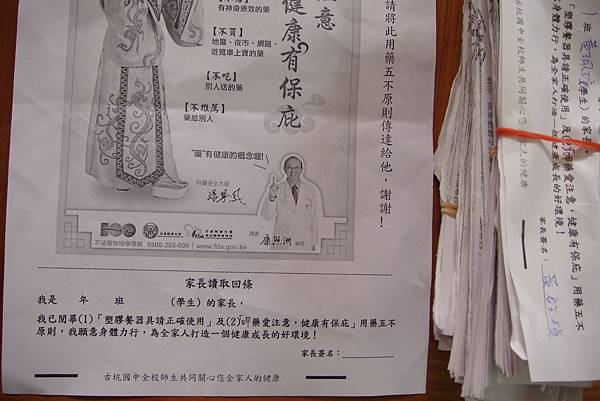 意
健康有保庇
請將此用藥五不原則傳達給他，謝謝！
有神奇療效的藥
【不買】
地攤、夜市、網路、
遊覽車上賣的藥
【不吃】
別人送的藥
【不推薦】
藥給別人
"藥"有健康的概念喔!
用藥安全大使
局長
康照洲
100
FDA
不法藥物檢舉專線 0800-285-000 | www.fda.gov.tw
家長讀取回條
我是 年 班 (學生) 的家長，
我已閱畢(1)「塑膠餐器具請正確使用」及(2)「呷藥愛注意，健康有保庇」用藥五不
原則，我願意身體力行，為全家人打造一個健康成長的好環境！
家長簽名：
古坑國中全校師生共同關心您全家人的健康
班
(學生) 的家長，
「塑膠餐器具請正確使用」及(2)「呷藥愛注意，健康有保庇」用藥五不
身體力行，為全家人打造一個健康成長的好環境！
家長簽名：
古坑國中全校師生共同關心您
家人的健康